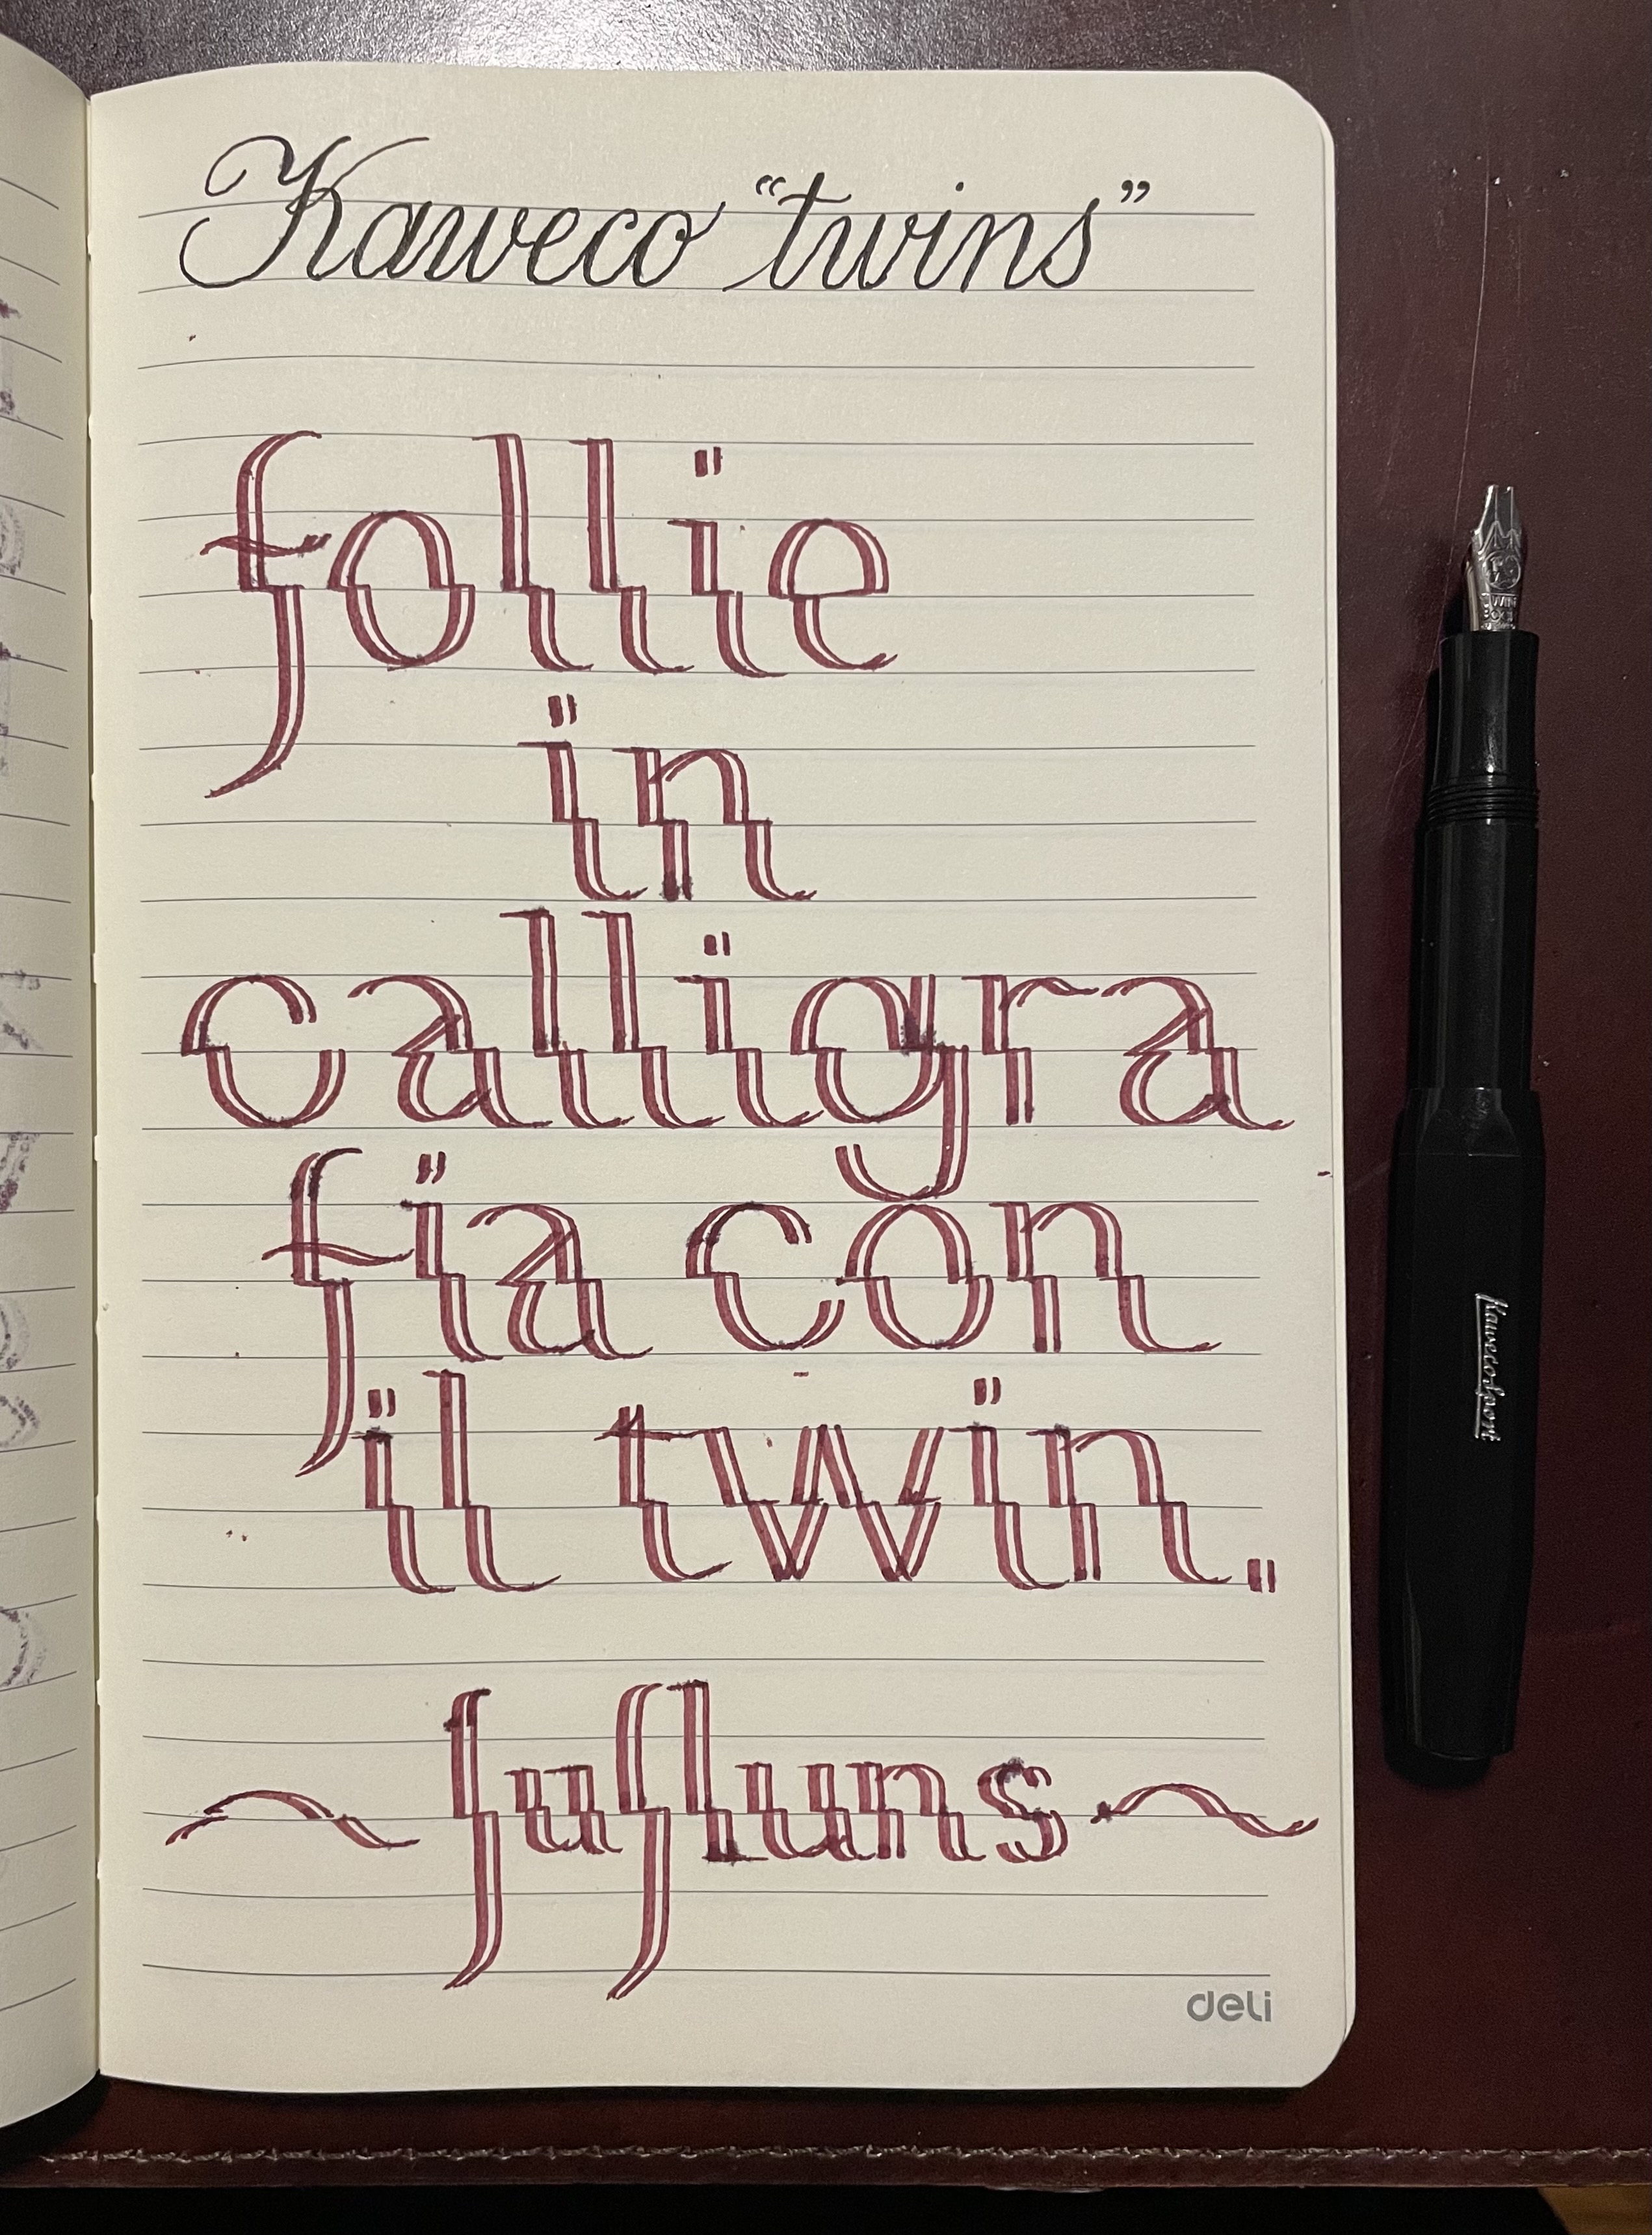 Kaweco “twins”
follie
in
calligra
fia con
il twin.
~ fufluns ~
deli
Kaweco Sport
TWIN